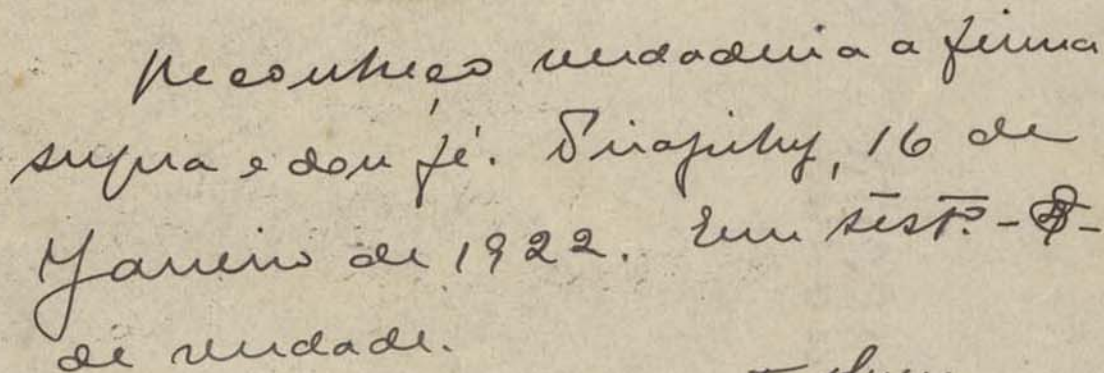 Reconheço verdadeira a firma
supra e dou fé. Pirajuhy, 16 de
Janeiro de 1922. Em test.º - -
de verdade.